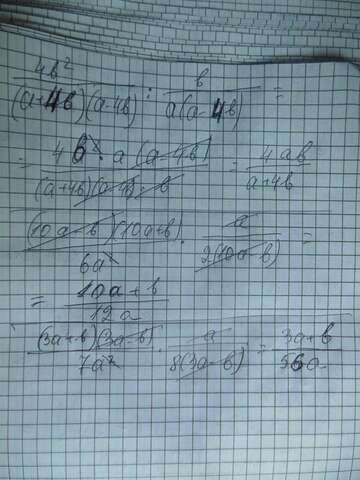 4b² / (a+4b)(a-4b) : b / a(a-4b) =
= 4b² · a(a-4b) / (a+4b)(a-4b) · b = 4ab / a+4b
(10a-b)(10a+b) / 6a² · a / 2(10a-b) =
= 10a+b / 12a
(3a+b)(3a-b) / 7a² · a / 8(3a-b) = 3a+b / 56a